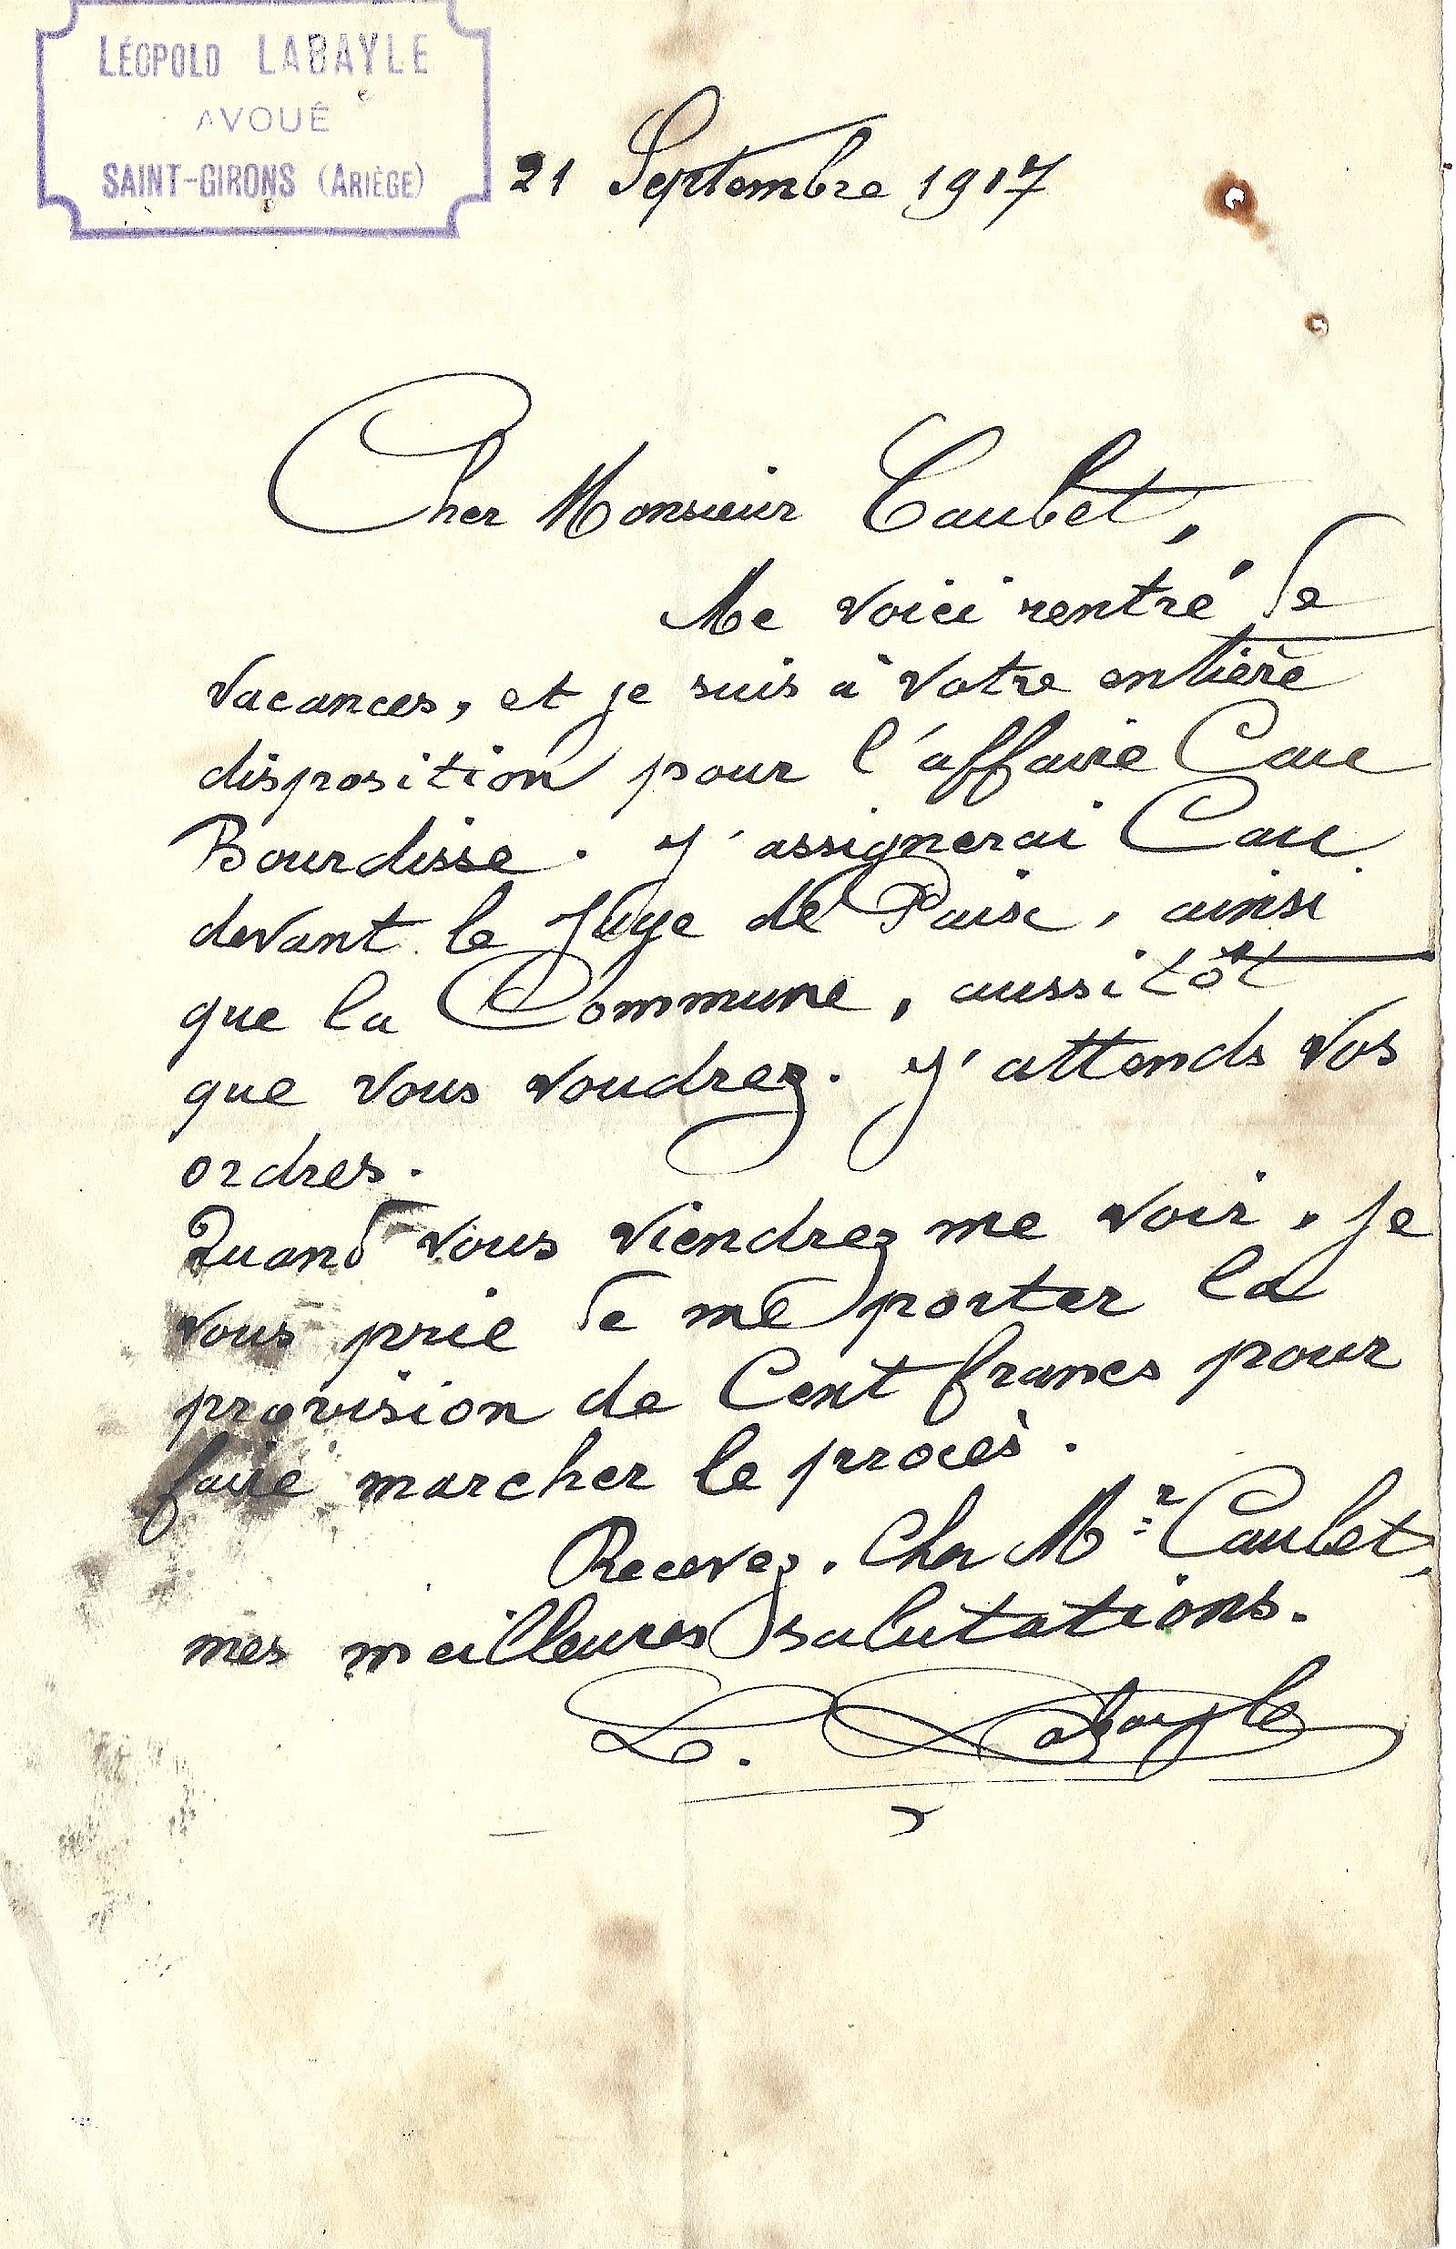 LÉOPOLD LABAYLE
AVOUÉ
SAINT-GIRONS (ARIÈGE)
21 Septembre 1917
Cher Monsieur Caubet,
Me voici rentré de
vacances, et je suis à votre entière
disposition pour l'affaire Cau
Bourdisse. J'assignerai Cau
devant le Juge de Paix, ainsi
que la Commune, aussitôt
que vous voudrez. J'attends vos
ordres.
Quand vous viendrez me voir, je
vous prie de me porter la
provision de Cent francs pour
faire marcher le procès.
Recevez, Cher Mr Caubet,
mes meilleures salutations.
L. Labayle